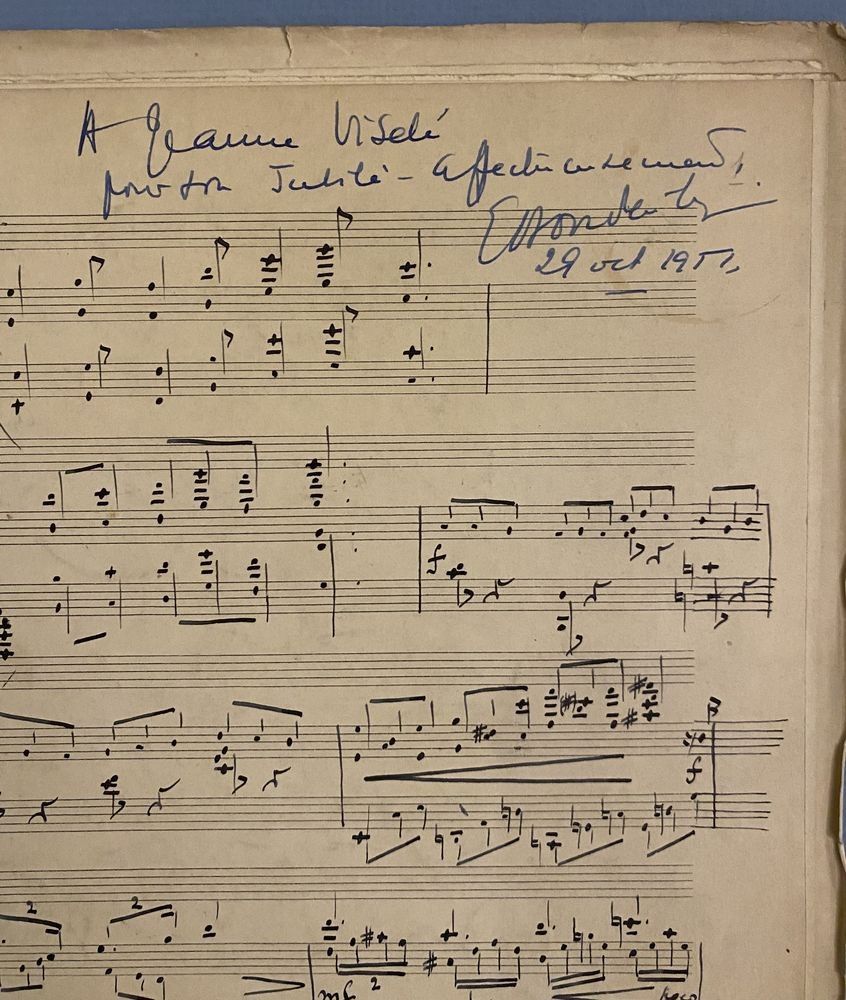 A Jeanne Viselé
pour son Jubilé - affectueusement,
E Bondeville
29 oct 1951,
f
f
2
2
2